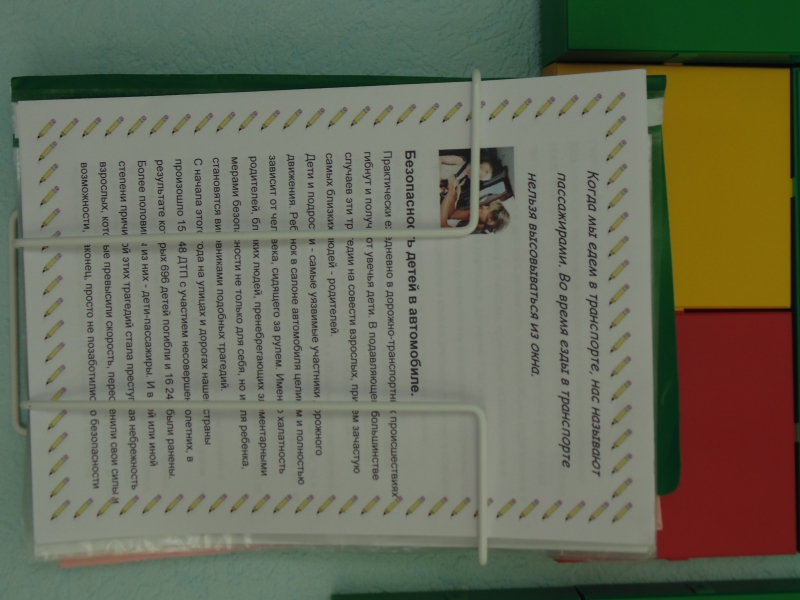 Когда мы едем в транспорте, нас называют
пассажирами. Во время езды в транспорте
нельзя высовываться из окна.
Безопасность детей в автомобиле.
Практически ежедневно в дорожно-транспортных происшествиях
гибнут и получают увечья дети. В подавляющем большинстве
случаев эти трагедии на совести взрослых, причем зачастую
самых близких людей - родителей.
Дети и подростки - самые уязвимые участники дорожного
движения. Ребенок в салоне автомобиля целиком и полностью
зависит от человека, сидящего за рулем. Именно халатность
родителей, близких людей, пренебрегающих элементарными
мерами безопасности не только для себя, но и для ребенка,
становятся виновниками подобных трагедий.
С начала этого года на улицах и дорогах нашей страны
произошло 15 48 ДТП с участием несовершеннолетних, в
результате которых 696 детей погибли и 16 24 были ранены.
Более половины из них - дети-пассажиры. И в той или иной
степени причиной этих трагедий стала преступная небрежность
взрослых, которые превысили скорость, переоценили свои силы и
возможности, наконец, просто не позаботились о безопасности